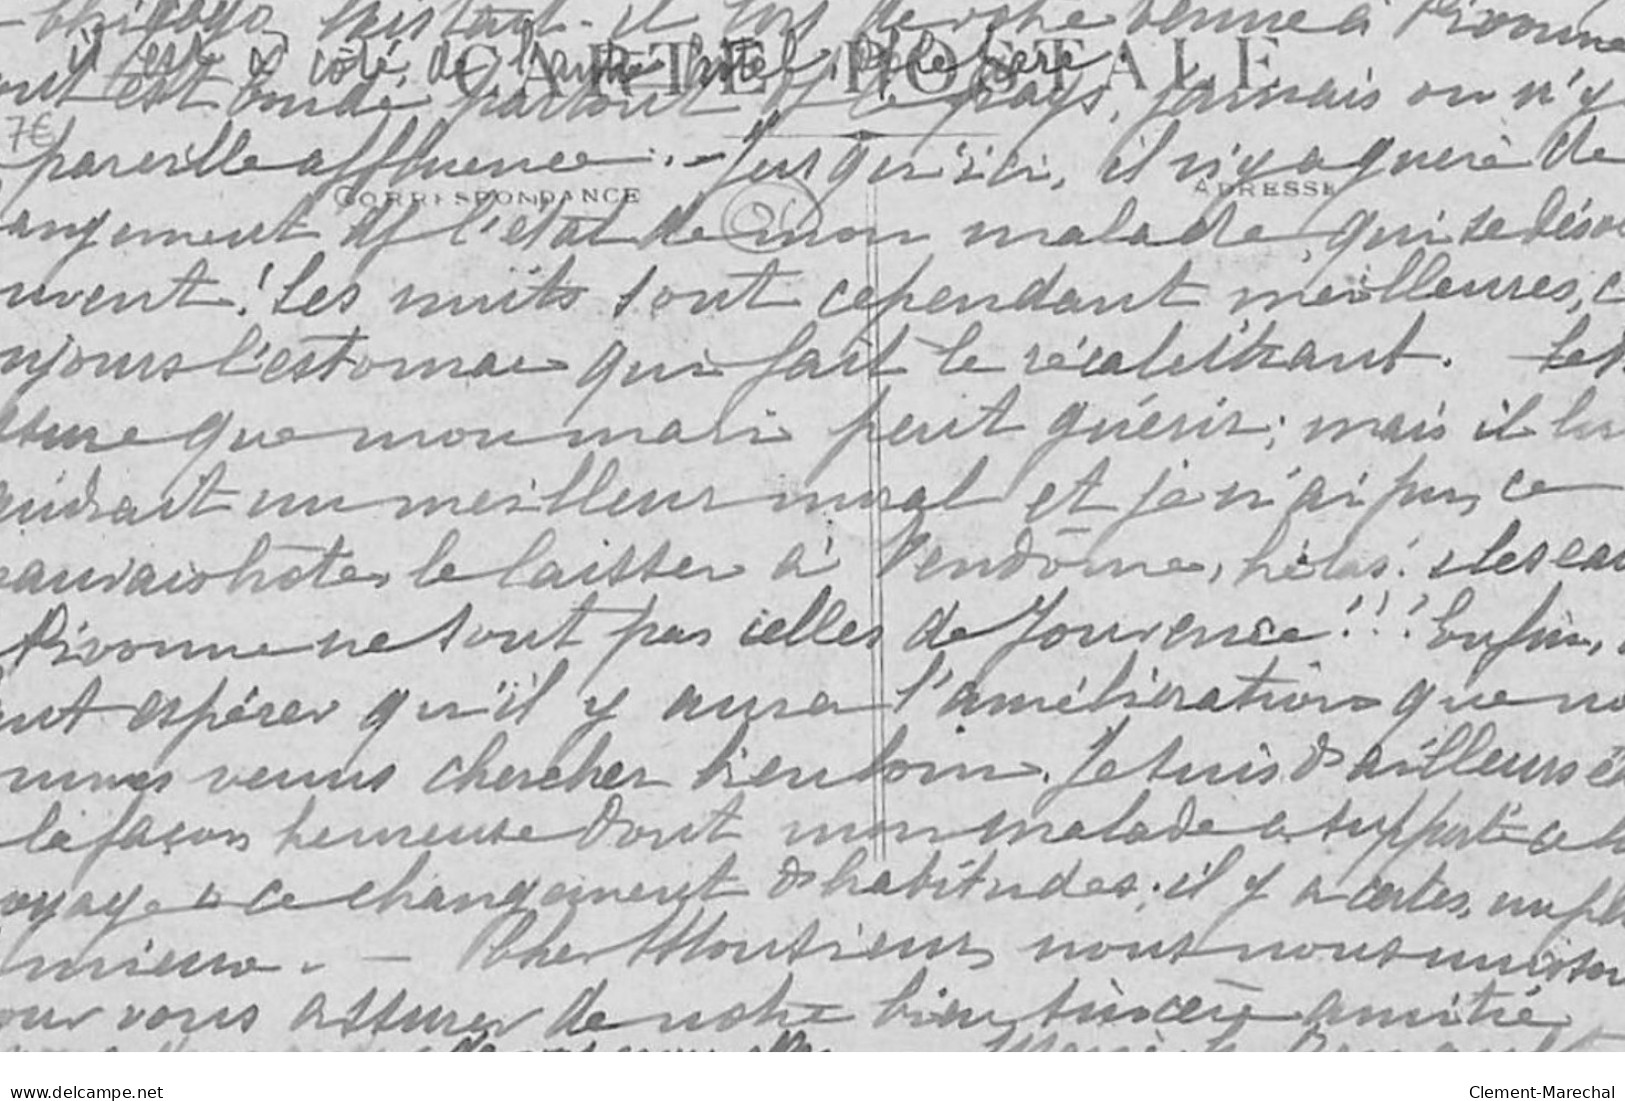 il est à côté de l'autre hôtel
CARTE POSTALE
est bondé partout le pays, jamais on n'y
7€
pareille affluence. - Jusqu'ici, il n'y a guère de
CORRESPONDANCE
ADRESSE
angement ds l'état de mon malade, qui se déso
uvent! Les nuits sont cependant meilleures, c
ujours l'estomac qui fait le récalcitrant.
ssure que mon mari peut guérir; mais il lui
audrait un meilleur moral et je n'ai pu, ce
auvais hôte, le laisser à Vendôme, hélas! les eau
ne sont pas celles de Jouvence!!! Enfin,
ut espérer qu'il y aura l'amélioration que no
mmes venus chercher bien loin. Je suis d'ailleurs
la façon heureuse dont mon malade a supporté ce
oyage & ce changement d'habitudes; il y a certes, un p
mieux. - Cher Monsieur, nous nous unissons
our vous assurer de notre bien sincère amitié
delcampe.net
Clement-Marechal